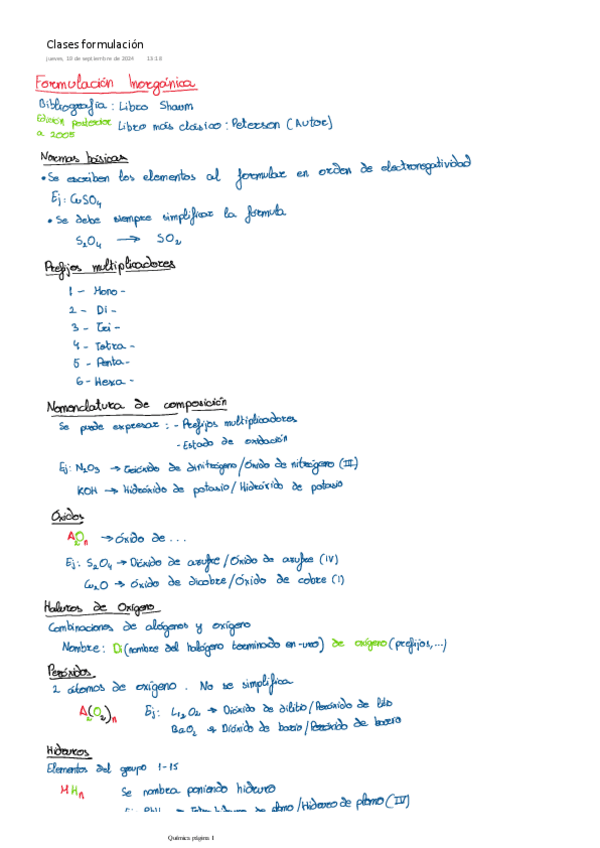 Clases formulación
jueves, 19 de septiembre de 2024 13:18
Formulación Inorgánica
Bibliografía: Libro Shaum
Edición posterior a 2005
Libro más clásico: Peterson (Autor)
Normas básicas
• Se escriben los elementos al formular en orden de electronegatividad
Ej: CuSO₄
• Se debe siempre simplificar la formula
S₂O₄ → SO₂
Prefijos multiplicadores
1 - Mono -
2 - Di -
3 - Tri -
4 - Tetra -
5 - Penta -
6 - Hexa -
Nomenclatura de composición
Se puede expresar: - Prefijos multiplicadores
- Estado de oxidación
Ej: N₂O₃ → Trióxido de dinitrógeno/Óxido de nitrógeno (III)
KOH → Hidróxido de potasio/Hidróxido de potasio
Óxidos
A₂Oₙ → óxido de ...
Ej: S₂O₄ → Dióxido de azufre/Óxido de azufre (IV)
Cu₂O → óxido de dicobre/Óxido de cobre (I)
Haluros de Oxígeno
Combinaciones de alógenos y oxígeno
Nombre: Di(nombre del halógeno terminado en -uro) de oxígeno (prefijos,...)
Peróxidos
2 átomos de oxígeno. No se simplifica
A₂(O₂)ₙ Ej: Li₂O₂ → Dióxido de dilitio/Peróxido de litio
BaO₂ → Dióxido de bario/Peróxido de bario
Hidruros
Elementos del grupo 1-15
MHₙ Se nombra poniendo hidruro
de plomo/Hidruro de plomo (IV)
Química página 1